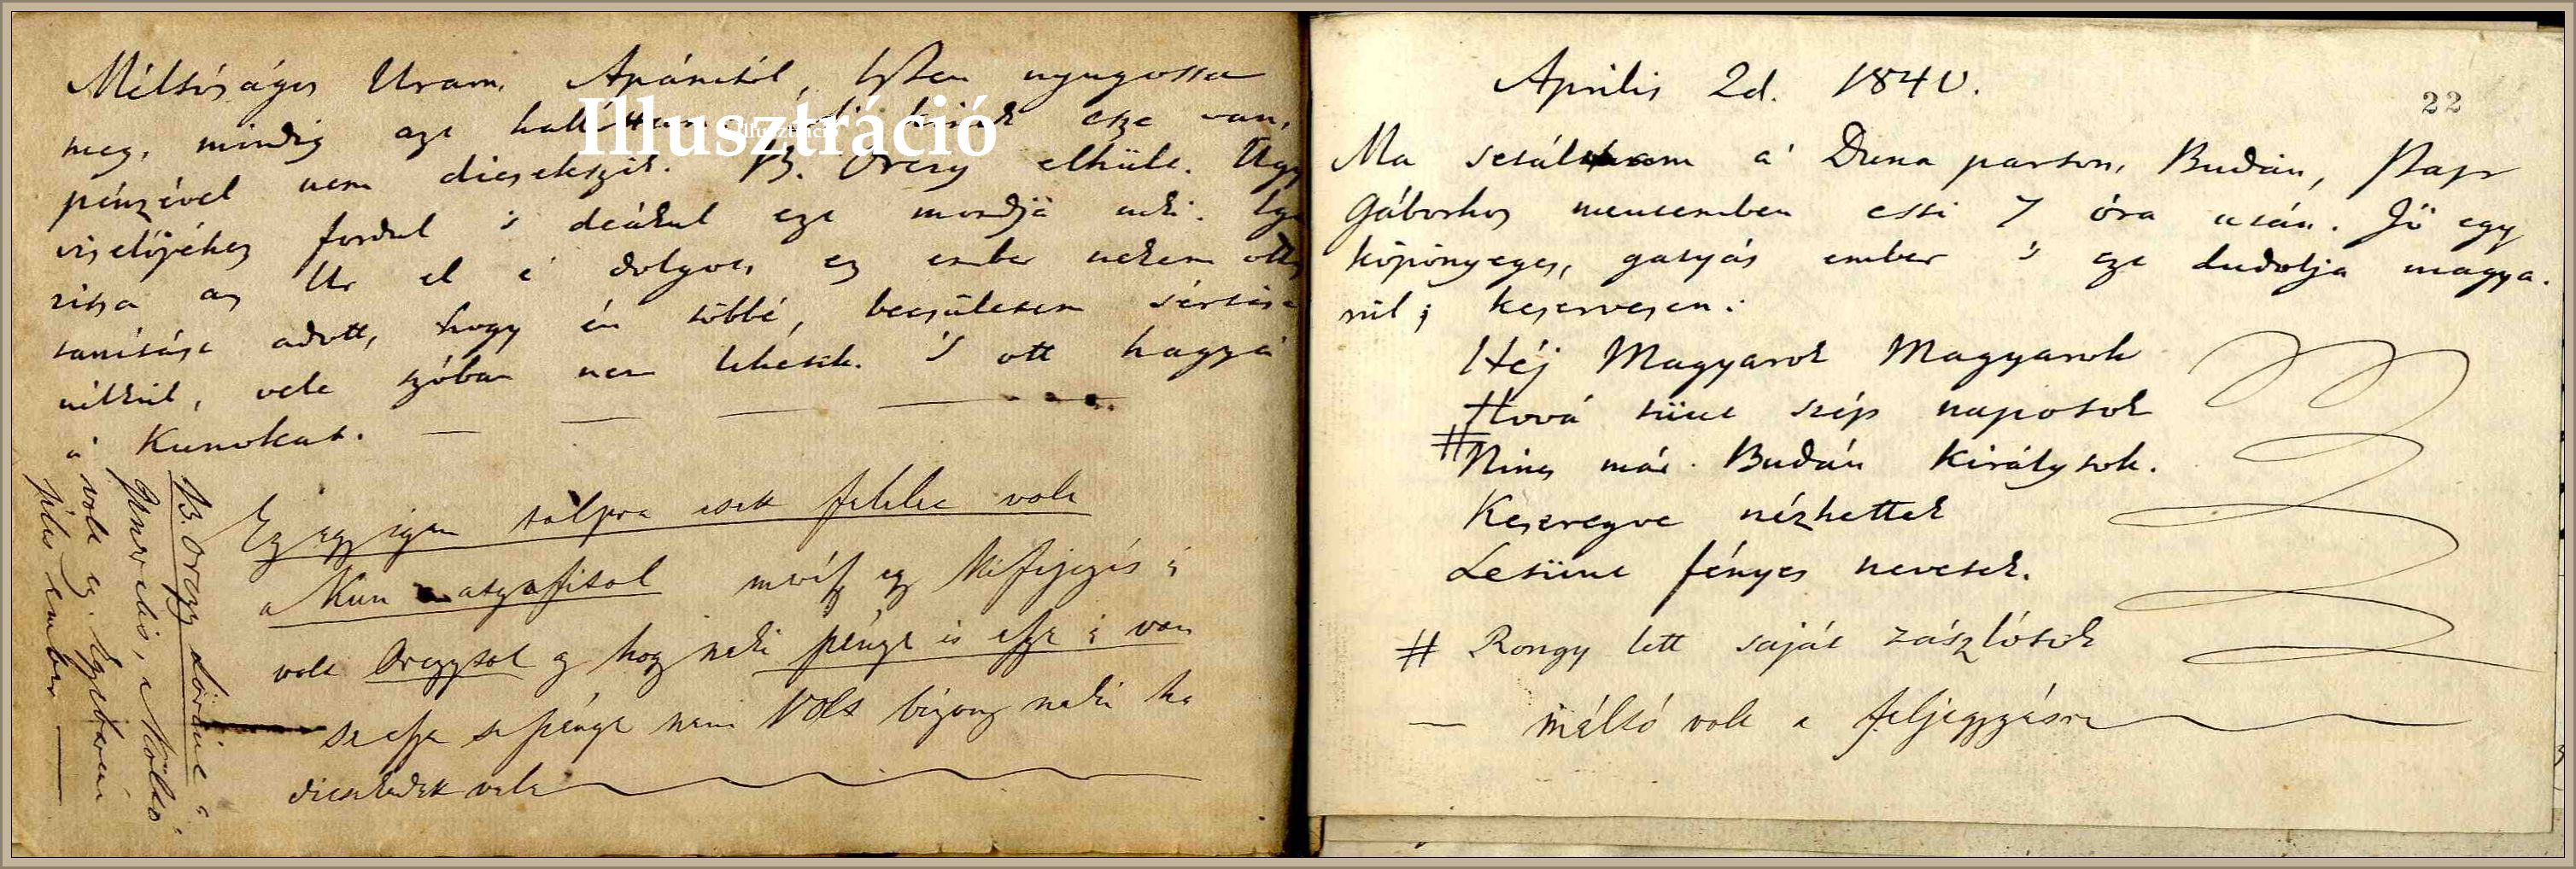 Méltóságos Uram, Apámtól, Isten nyugossa
meg, mindig azt hallottam, kinek esze van,
pénzével nem dicsekszik. B. Orczy elhült. Ügy
viselőjéhez fordul 's deákul ezt mondja neki. Ig
rissa az Ur el a' dolgot, ez ember nekem olly
tanítást adott, hogy én többé, becsületem sértése
nélkül, vele szóban nem lehetek. 'S ott hagyá
a' Kunokat.
Ez egy igen talpra esett felelet volt
a Kun atyafitol mivel ez kifejezés
volt Orczytol hogy neki pénze is esze is van
se esze se pénze nem volt bizony neki ha
dicsekedett vele
B. Orczy Lőrincz
General is,
volt ez. Egyebaránt
jeles ember
Illusztráció
Illusztráció
Aprilis 2d. 1840.
22
Ma sétáltam a' Duna parton, Budán, Pap
Gáborhoz mentemben esti 7 óra után. Jő egy
köpönyeges, gatyás ember 's ezt dudolja magya-
rúl; keservesen:
Héj Magyarok Magyarok
Hová tünt szép napotok
# Nincs már Budán királytok.
Keseregve nézhettek
Letünt fényes nevetek.
# Rongy lett saját zászlótok
— méltó volt a feljegyzésre